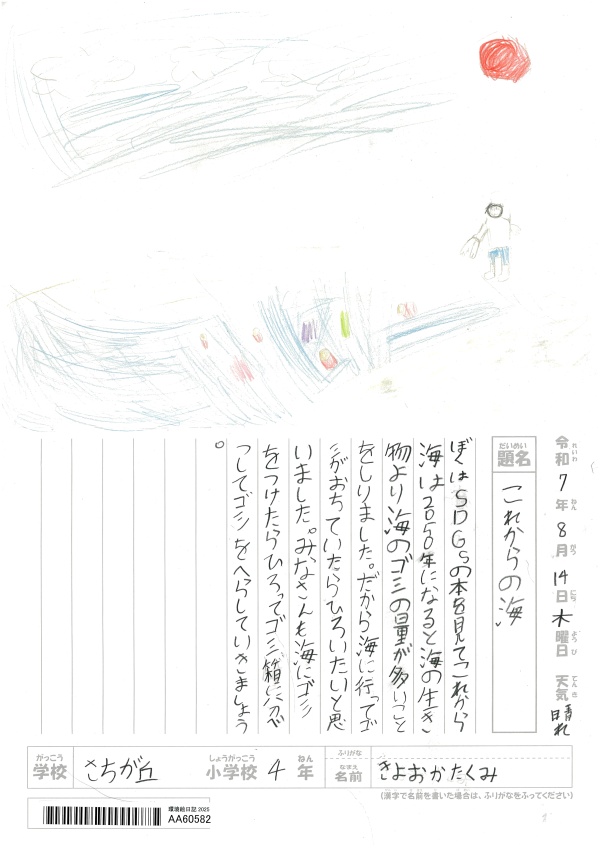 令和7年8月14日木曜日 天気 晴れ
れいわ ねん がつ にち ようび てんき
だいめい
題名 これからの海
ぼくはSDGsの本を見てこれから
海は2050年になると海の生き
物より海のゴミの量が多いこと
をしりました。だから海に行ってゴ
ミがおちていたらひろいたいと思
いました。みなさんも海にゴミ
をつけたらひろってゴミ箱に分べ
つしてゴミをへらしていきましょう
。
がっこう しょうがっこう ねん ふりがな
学校 さちが丘 小学校 4年 名前 きよおかたくみ
なまえ
(漢字で名前を書いた場合は、ふりがなをふってください)
環境絵日記 2025
AA60582